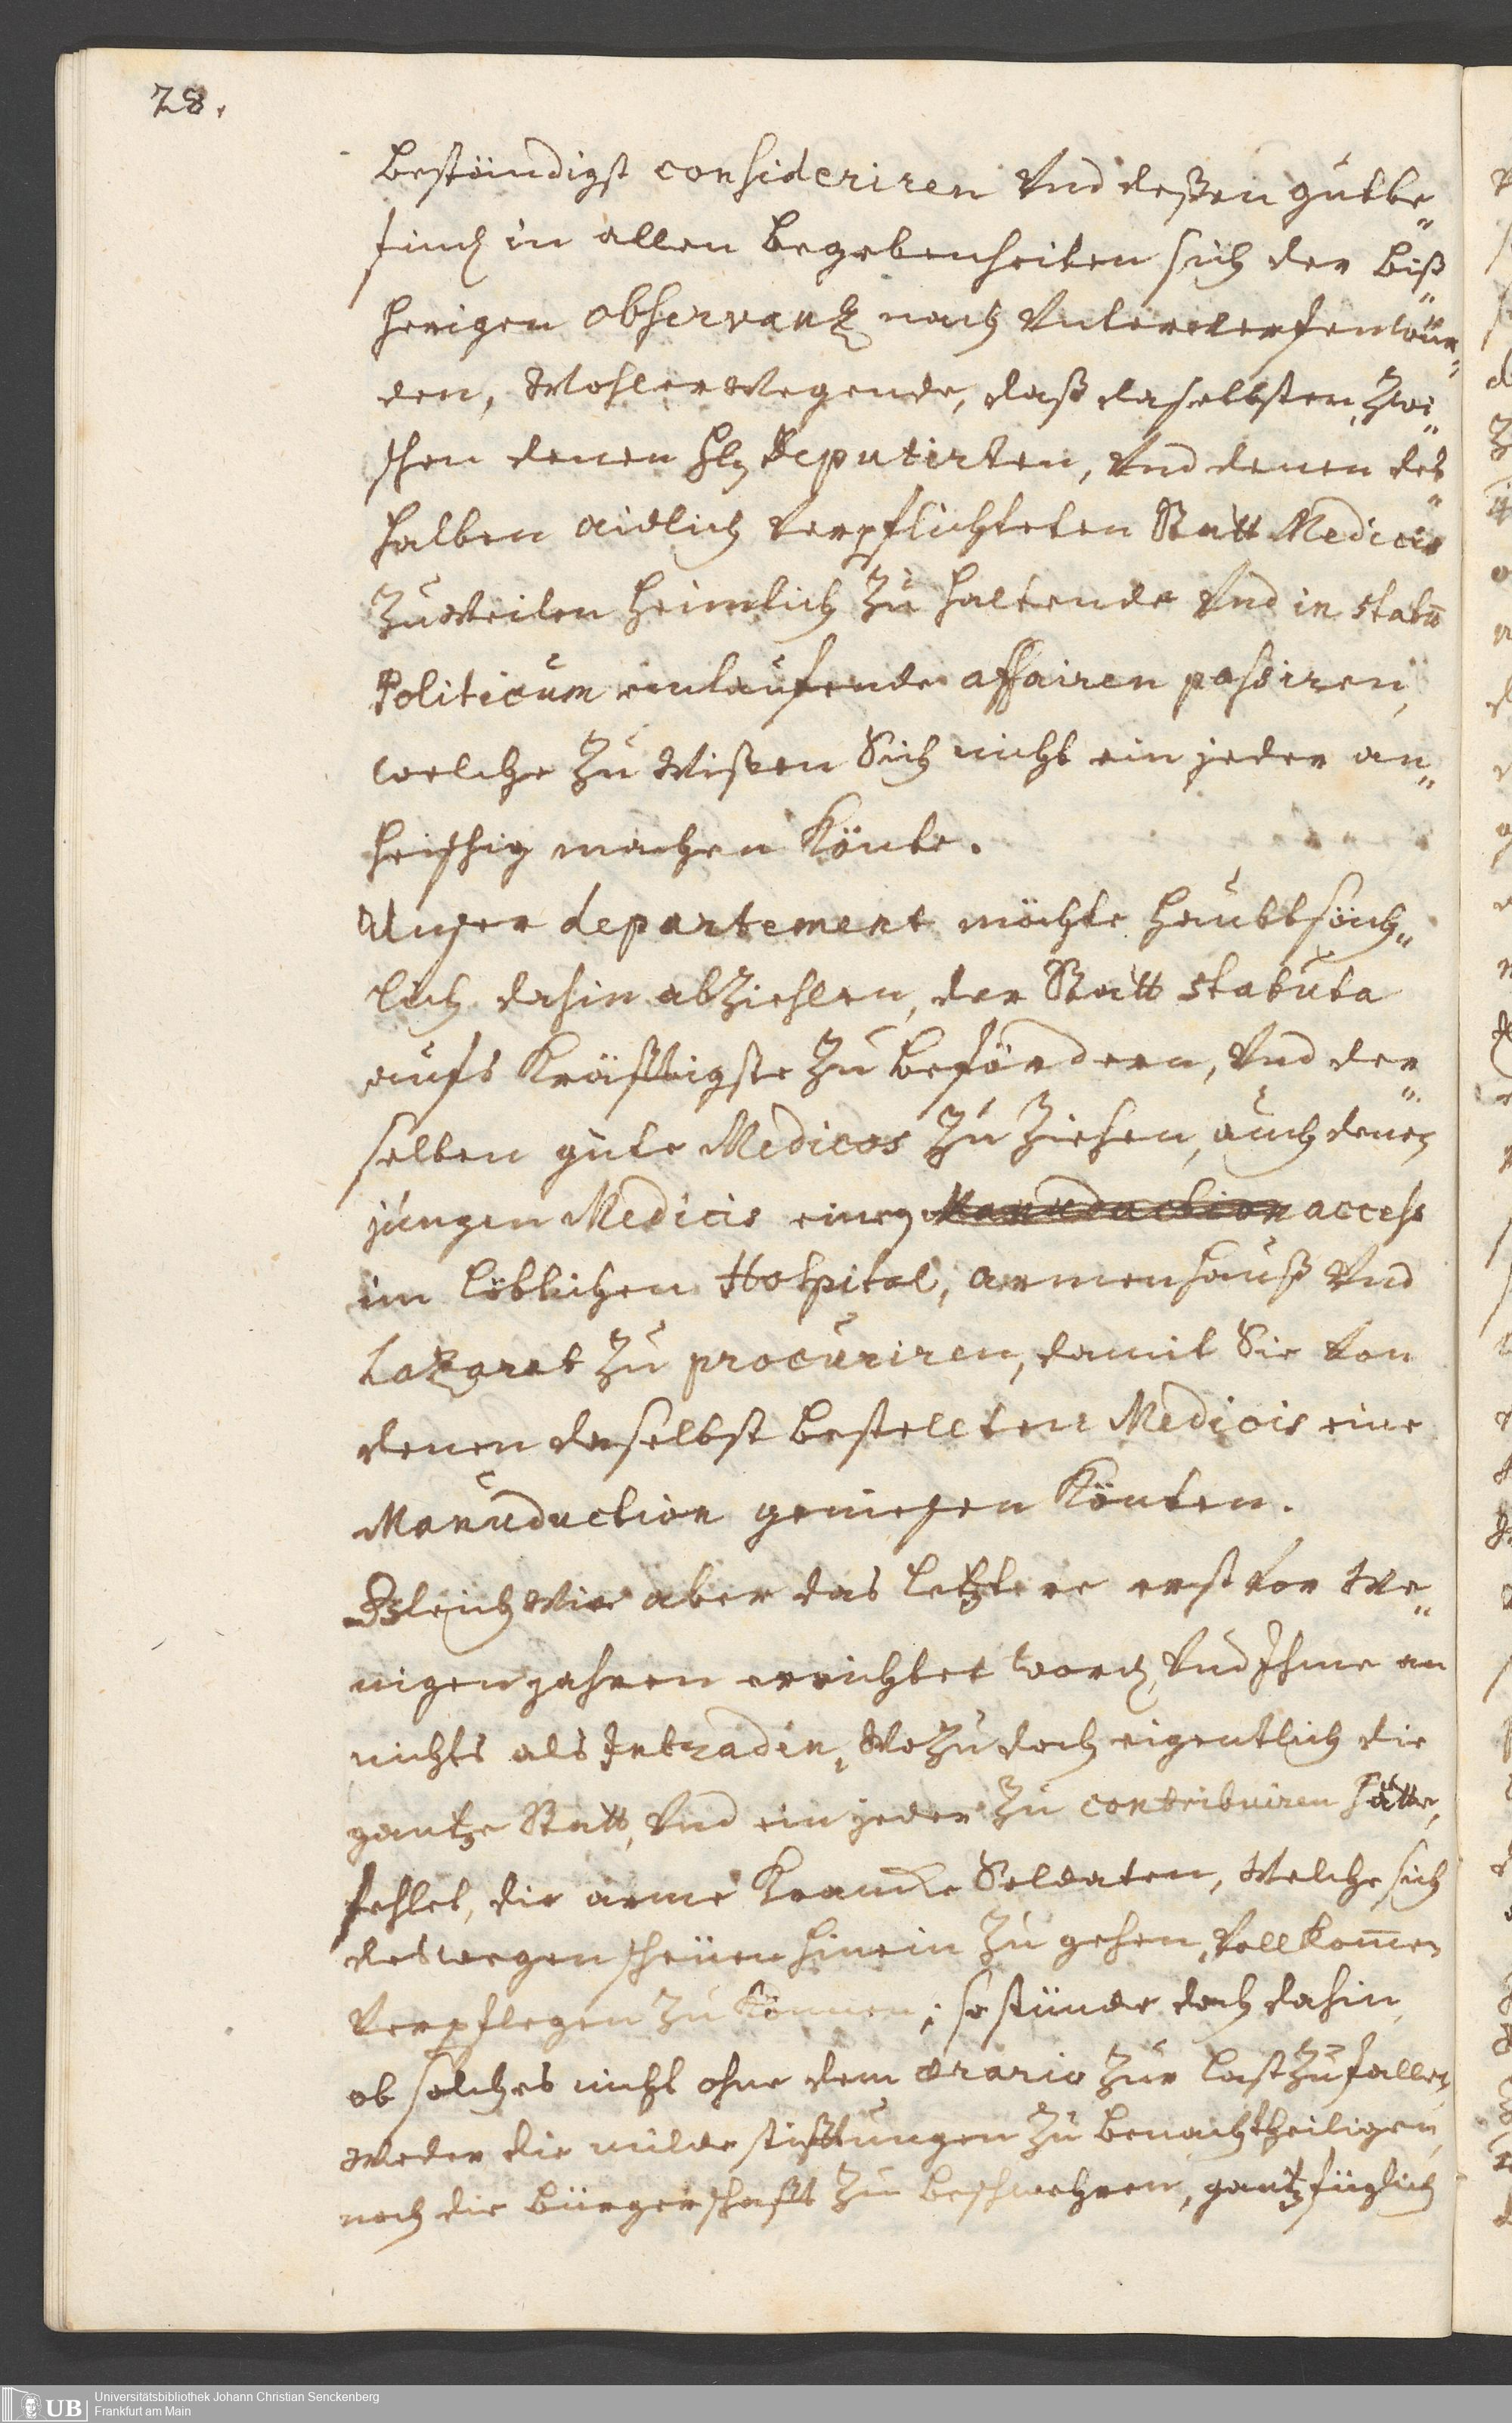 28.
beständigst consideriren Vnd deßen gutbe„
find in allen begebenheiten sich der biß„
herigen observantz nach Unterwerfen wür„
den, Wohlerwegende, daß daselbsten, Zwi„
schen denen H. Deputirten, Vnd denen des„
halben aidlich Verpflichteten Statt Medicis
Zuweilen heimlich Zu haltende Vnd in statū
Politicum einlaufende affairen passiren,
welche Zu Wißen Sich nicht ein jeder an„
heischig machen Könte.
Unser departement möchte haubtsäch„
lich dahin abZiehlen, der Statt statuta
aufs Kräfftigste Zu befördern, Vnd der„
selben gute Medicos Zu Ziehen, auch denen
jungen Medicis einen Manuduction access
im löblichen Hospital, armenhauß Vnd
Lazaret Zu procuriren, damit Sie Von
denen daselbst bestellten Medicis eine
Manuduction geniesen Könten.
Gleich Wie aber das letztere erst Vor We„
nigen jahren errichtet word, Vnd Ihme an
nichts als Intraden, WoZu doch eigentlich die
gantze Statt, Vnd ein jeder Zu contribuiren hätte,
fehlet, die arme Krancke Soldaten, Welche sich
deswegen scheuen hinein Zu gehen, Vollkom̄en
Verpflegen Zu Können; so stünde doch dahin,
ob solches nicht ohne dem ærario Zur last Zu fallen,
Weder die milde stifftungen Zu benachtheiligen,
noch die bürgerschafft Zu beschwehren, gantz füglich
Universitätsbibliothek Johann Christian Senckenberg
UB Frankfurt am Main